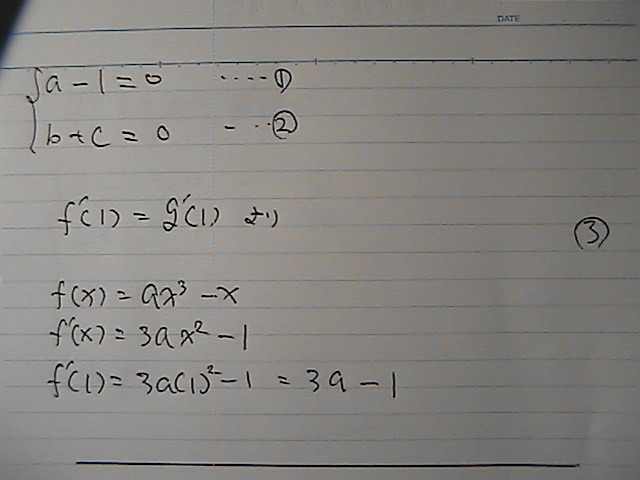 DATE
a - 1 = 0 ････①
b + c = 0 - ･･②
f'(1) = g'(1) より
③
f(x) = ax³ - x
f'(x) = 3ax² - 1
f'(1) = 3a(1)² - 1 = 3a - 1